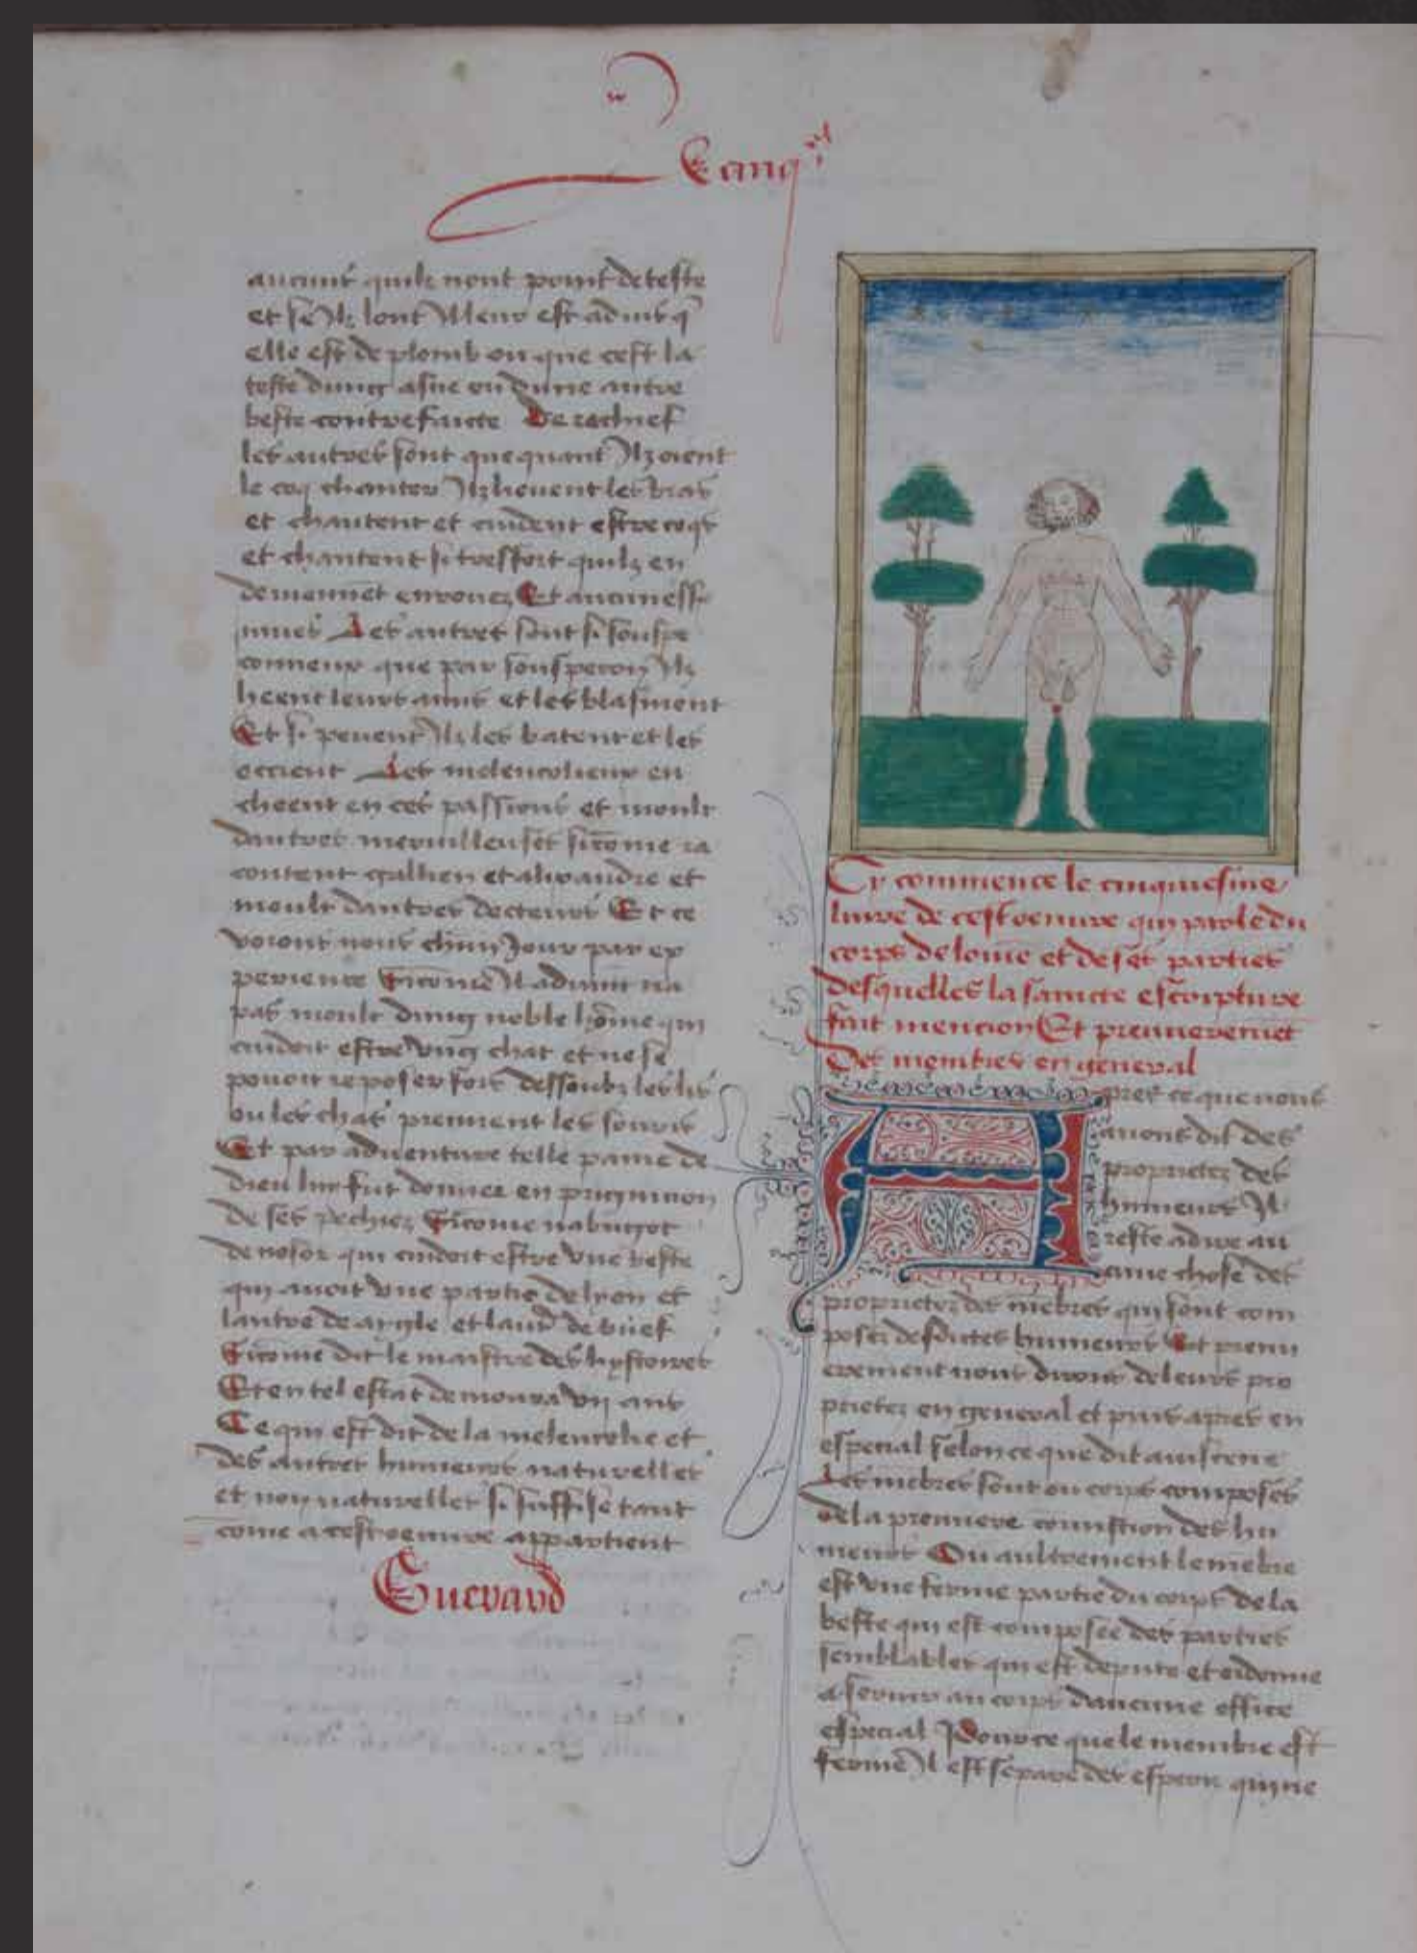 Cinq
aucuns quilz nont point de teste
et se Ilz lont Il leur est aduis q̄
elle est de plomb ou que cest la
teste dung asne ou dune autre
beste contrefaicte De rechief
les autres sont que quant Ilz oient
le coq chanter Ilz lieuent les bras
et chantent et cuident estre coqs
et chantent si tresfort quilz en
deuiennēt enrouez Et aucuneff
mues Les autres sont si souspe
conneux que par souspecon Ilz
heent leurs amis et les blasment
Et si peuent Ilz les batent et les
occient Les melencolieux en
cheent en ces passions et moult
dautres merueilleuses sicōme ra
content gallien et alixandre et
moult dautres docteurs Et ce
voions nous chūn Jour par ex
perience Sicōme Il aduint na
pas moult dung noble hōme qui
cuidoit estre vng chat et ne se
pouoit reposer fors dessoubz les lis
ou les chas prennent les souris
Et par aduenture telle paine de
dieu luy fut donnee en pugnicion
de ses pechiez Sicōme nabugot
de nosor qui cuidoit estre vne beste
qui auoit vne partie de lyon et
lautre de aigle et laut̄ de buef
Sicōme dit le maistre des hystoires
Et en tel estat demoura vij ans
Ce qui est dit de la melencolie et
des autres humeurs naturelles
et non naturelles si suffise tant
cōme a cest oeuure appartient
Guerard
Cy commence le cinquiesme
liure de cest oeuure qui parle du
corps de lomē et de ses parties
desquelles la saincte escripture
fait mencion Et premieremēt
Des membres en general
Apres ce que nous
auons dit des
proprietez des
humeurs Il
reste a dire au
cune chose des
proprietez des mēbres qui sont com
posez desdictes humeurs Et premi
erement nous dirons de leurs pro
prietez en general et puis apres en
especial selon ce que dit auiscene
Les mēbres sont ou corps composés
de la premiere commistion des hu
meurs Ou aultrement le mēbre
est vne ferme partie du corps de la
beste qui est composee des parties
semblables qui est depute et ordonne
a seruir au corps daucune office
especial Pour ce que le membre est
ferme Il est separe des esperis qui ne